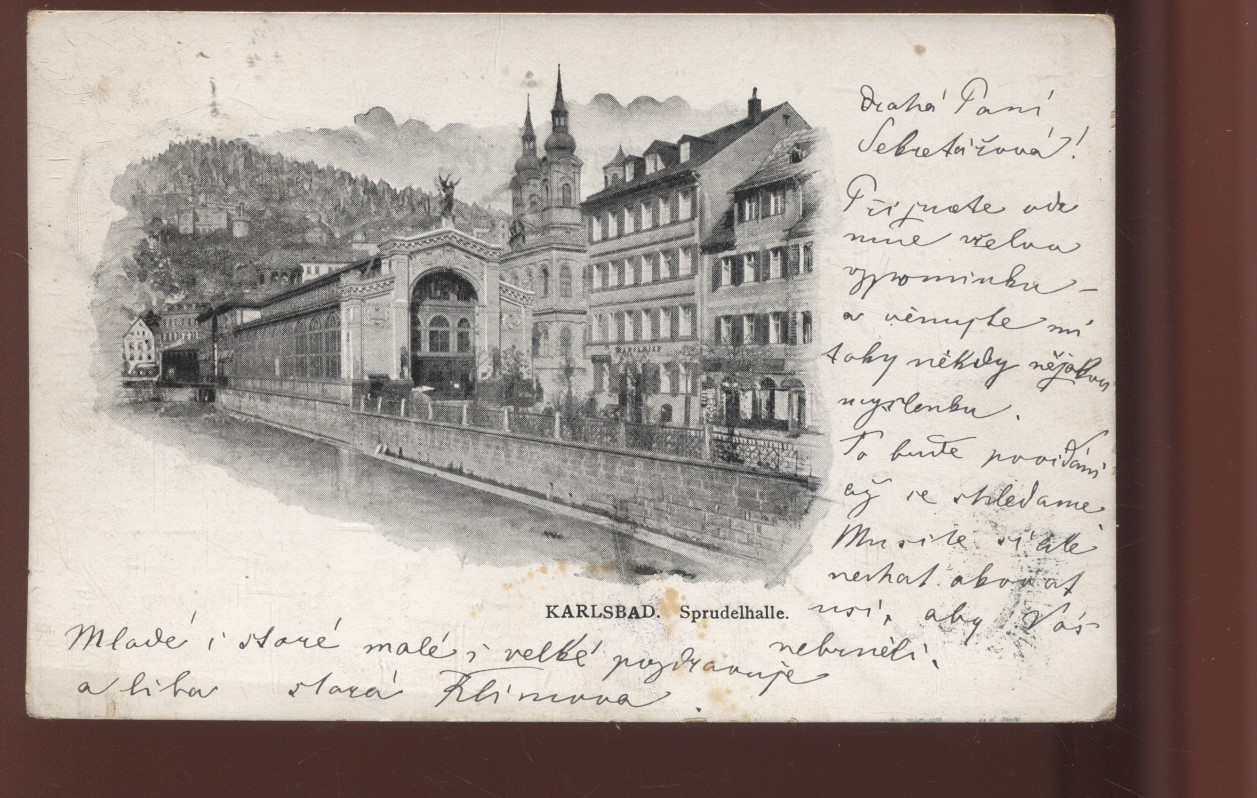 Drahá Paní
Sekretářová!
Přijměte ode
mne vřelou
vzpomínku –
a věnujte mi
taky někdy nějakou
myslenku.
To buďe povídání
až se shledame
Musite si ale
nechat okovat
usi, aby Vás
nebrněli.
KARLSBAD. Sprudelhalle.
Mladé i staré malé i velké pozdravuje
a liba stará Klimova.